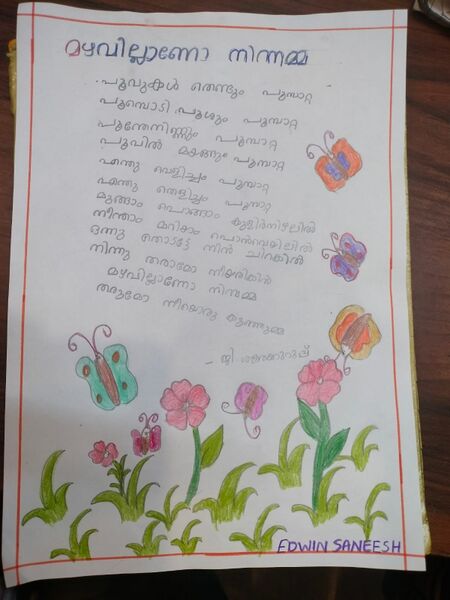 മഴവില്ലാണോ നിന്നമ്മ
പൂവുകൾ തെണ്ടും പൂമ്പാറ്റ
പൂമ്പൊടി പൂശും പൂമ്പാറ്റ
പൂന്തേനിണ്ണും പൂമ്പാറ്റ
പൂവിൽ മയങ്ങും പൂമ്പാറ്റ
എന്തു വെളിച്ചം പൂമ്പാറ്റ
എന്തു തെളിച്ചം പൂമ്പാറ്റ
മുങ്ങാം പൊങ്ങാം കുളിർനിഴലിൽ
നീന്താം മറിയാം പൊൻവെയിലിൽ
ഒന്നു തൊടട്ടേ നിൻ ചിറകിൽ
നിന്നു തരാമോ നീയരികിൽ
മഴവില്ലാണോ നിന്നമ്മ
തരുമോ നീയൊരു കുഞ്ഞുമ്മ
- ജി.
EDWIN SANEESH